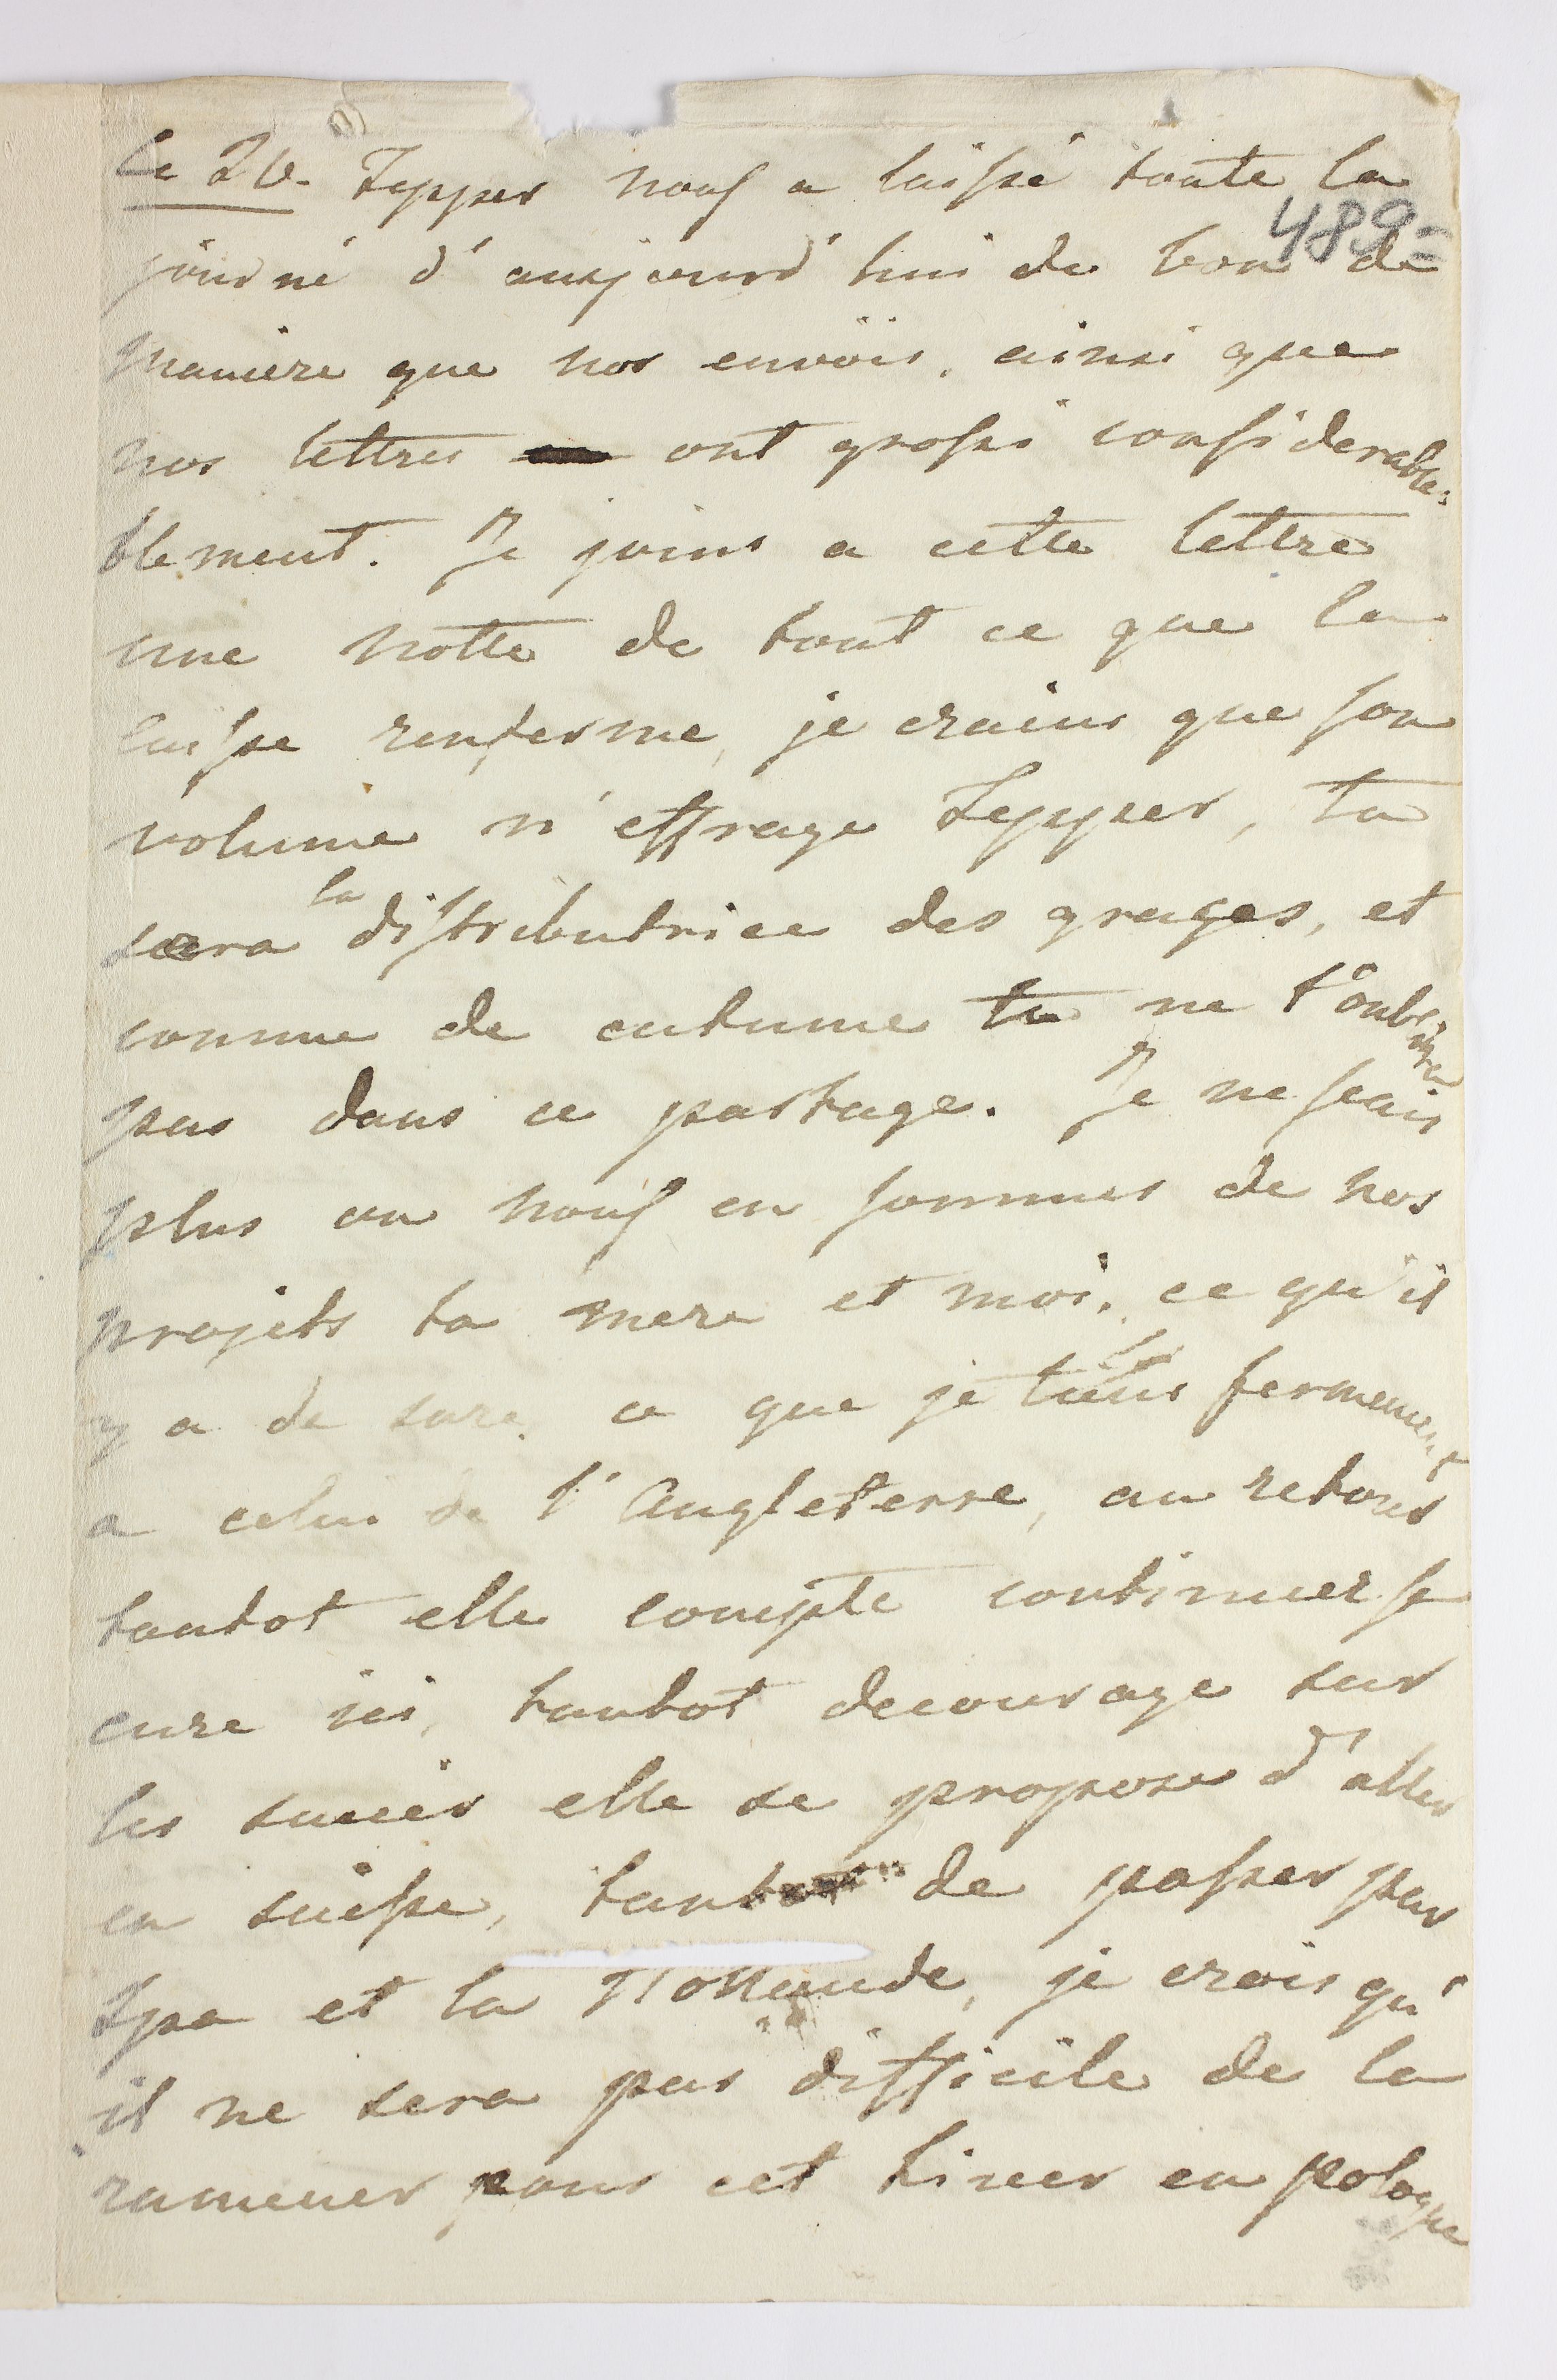 Ce 26. Tepper nous a laissé toute la
489
journé d'aujourd'hui du bon de
maniere que nos envois, ainsi que
nos lettres ont grossi considerable-
blement. Je joins a cette lettre
une notte de tout ce que la
caisse renferme, je crains que son
volume n'effraye Tepper, tu
sera la distributrice des graçes, et
comme de cutume tu ne t'oublira
pas dans ce partage. Je ne scais
plus ou nous en sommes de nos
projets ta mere et moi, ce qu'il
y a de sure, ce que je tiens fermement
a celui de l'Angleterre, au retour
tantot elle compte continuer sa
cure ici, tantot decourage sur
les succès elle se propose d'aller
en suisse, tantot de passer par
Spa et la Hollande, je crois qu'
il ne sera pas difficile de la
ramener pour cet hiver en pologne